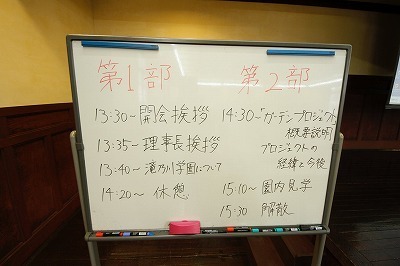 第1部
13:30~ 開会挨拶
13:35~ 理事長挨拶
13:40~ 滝乃川学園について
14:20~ 休憩
第2部
14:30~「ガーデンプロジェクト」
概要説明
プロジェクトの
経緯と今後
15:10~ 園内見学
15:30 解散